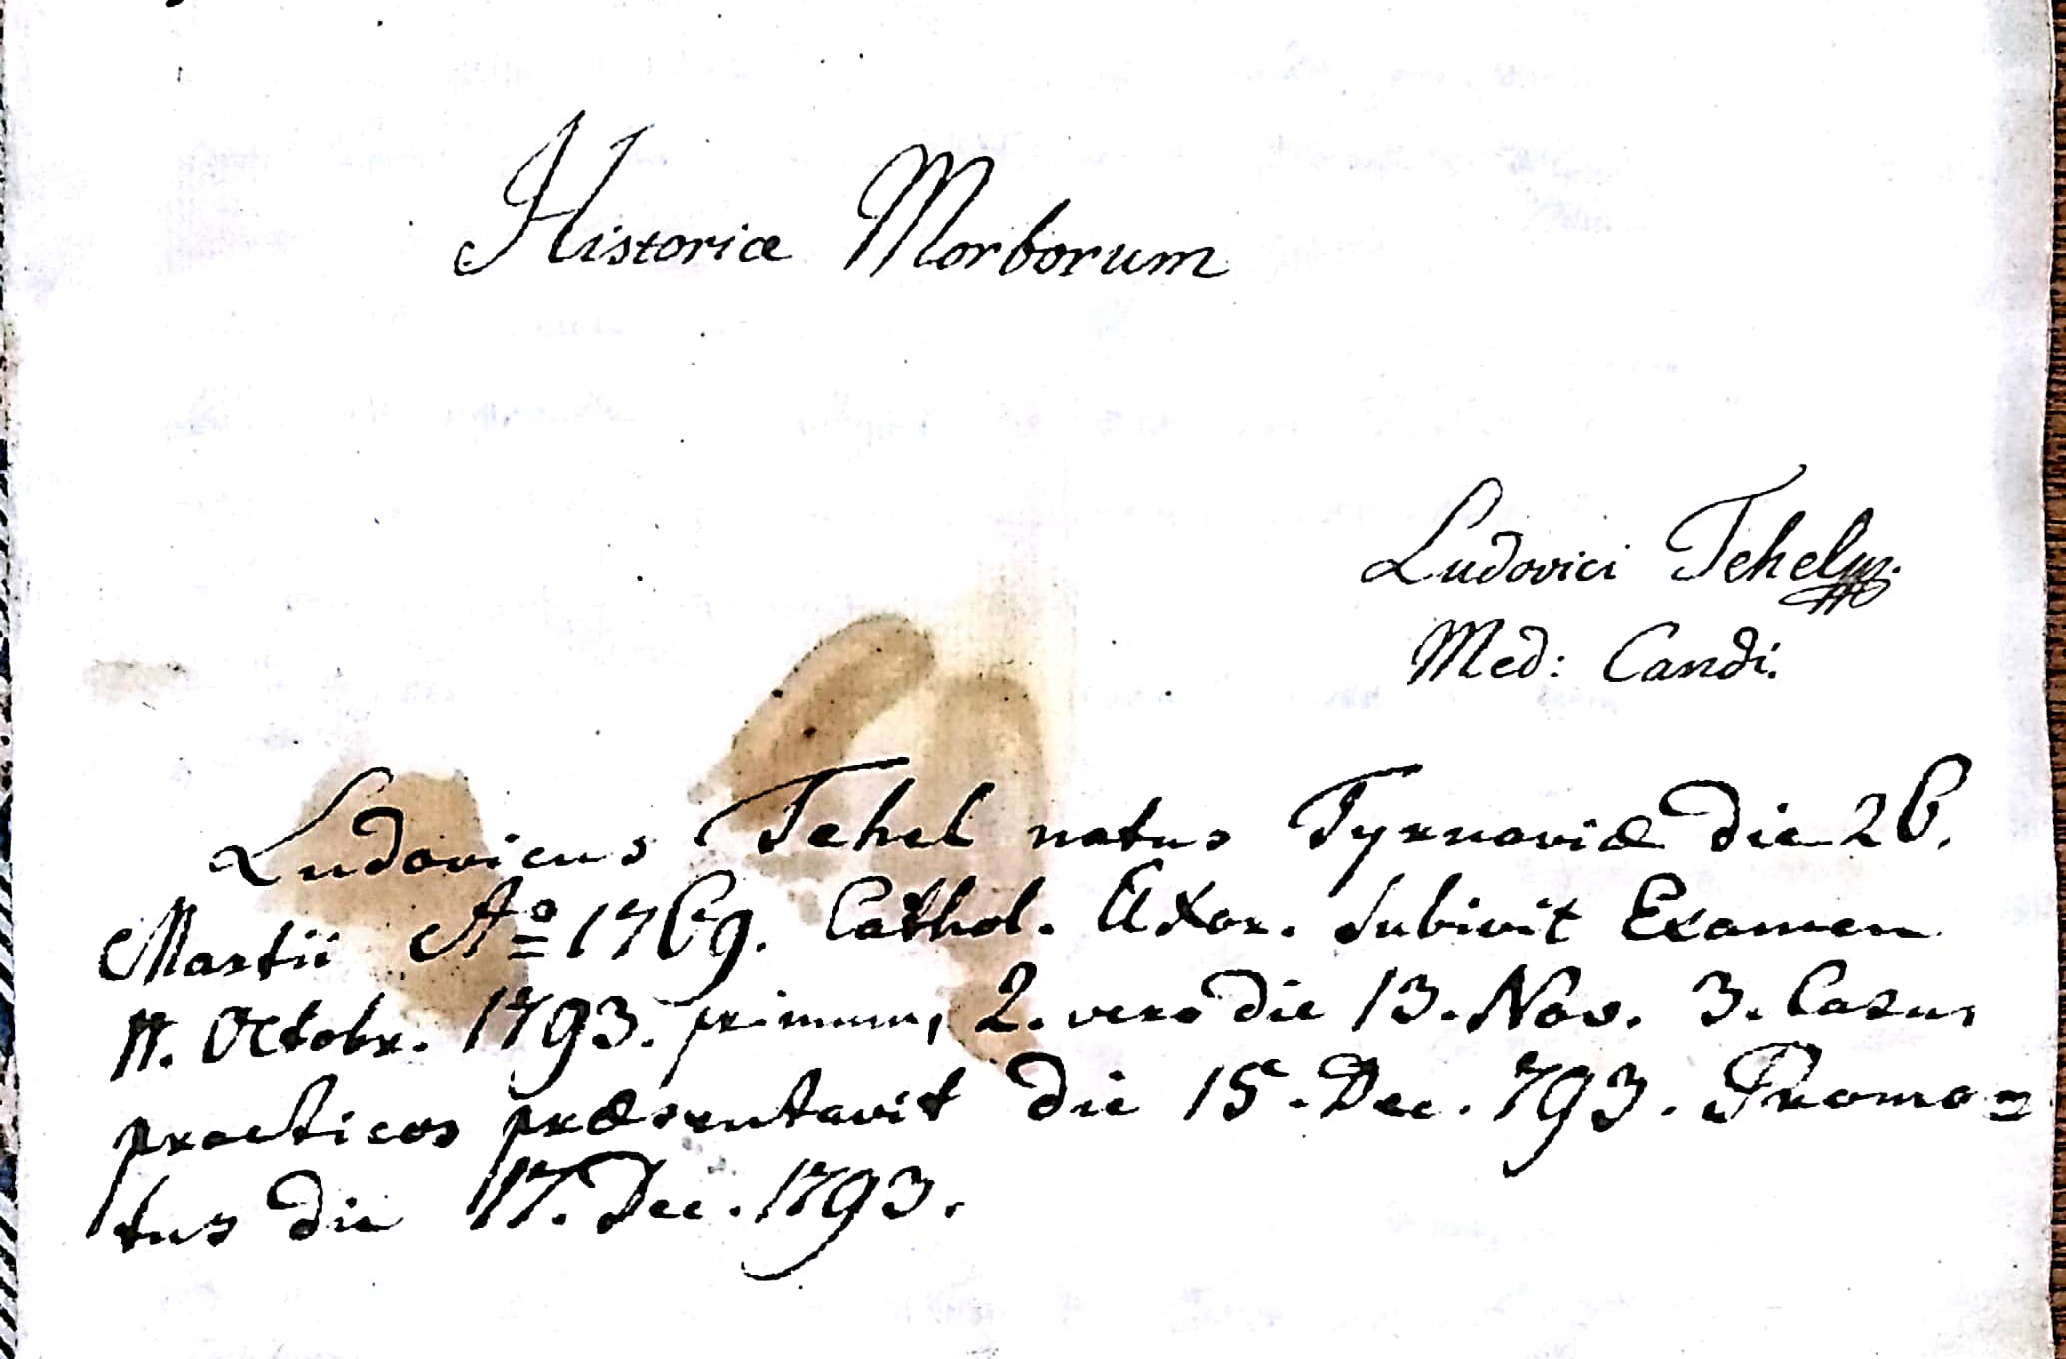 Historiæ Morborum
Ludovici Tehely
Med: Candi.
Ludovicus Tehel natus Tyrnaviæ die 26.
Martii Aº 1769. Cathol. Uxor. Subivit Examen
11. Octobr. 1793. primum, 2. vero die 13. Nov. 3. Casus
practicos præsentavit die 15. Dec. 793. Promo=
tus die 17. Dec. 1793.